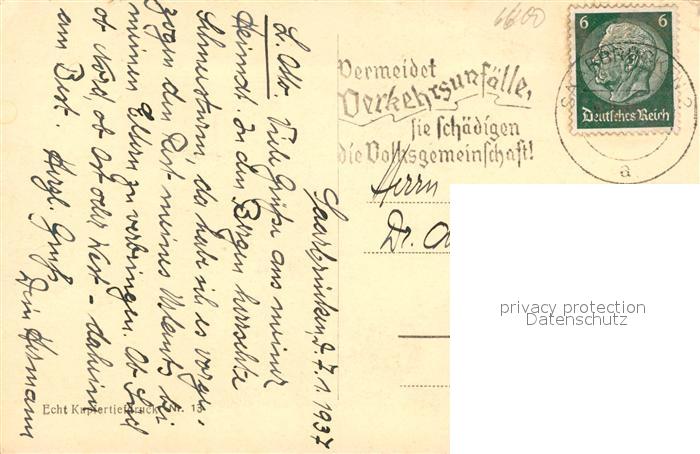 6600
6 6
Deutsches Reich
SAARBRÜCKEN 2
a
Vermeidet
Verkehrsunfälle,
sie schädigen
die Volksgemeinschaft!
Herrn
Dr.
privacy protection
Datenschutz
Saarbrücken, d. 7.1.1937
L. Otto. Viele Grüße aus meiner
Heimat. In den Bergen herrschte
Schneesturm, da habe ich es vorge-
zogen den Rest meines Urlaubs bei
meinen Eltern zu verbringen. Ob Süd
ob Nord, ob Ost oder West - daheim
am Best. Herzl. Gruß
Dein Hermann
Echt Kupfertiefdruck Nr. 13